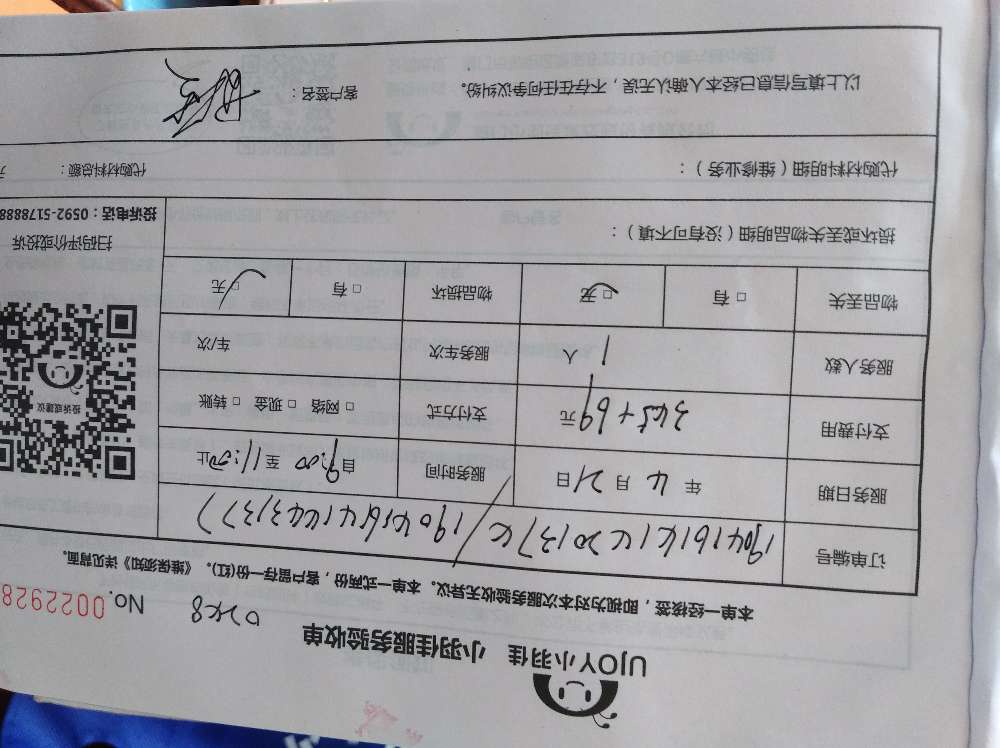 UJOY小羽佳 小羽佳服务验收单
No. 0022928
本单一经核签，即视为对本次服务验收无异议。本单一式两份，客户留存一份(红)。《维保须知》详见背面。
订单编号
服务日期 年 4 月 21 日 服务时间 自 9:00 至 11:00 止
支付费用 元 支付方式 □ 网络 □ 现金 □ 转账
服务人数 1 人 服务车次 车/次
物品丢失 □ 有 □ 无 物品损坏 □ 有 □ 无
损坏或丢失物品明细（没有可不填）：
扫码评价或投诉
投诉或建议
投诉电话：0592-5178888
代购材料明细（维修业务）： 代购材料总额：
以上填写信息已经本人确认无误，不存在任何争议纠纷。 客户签名：